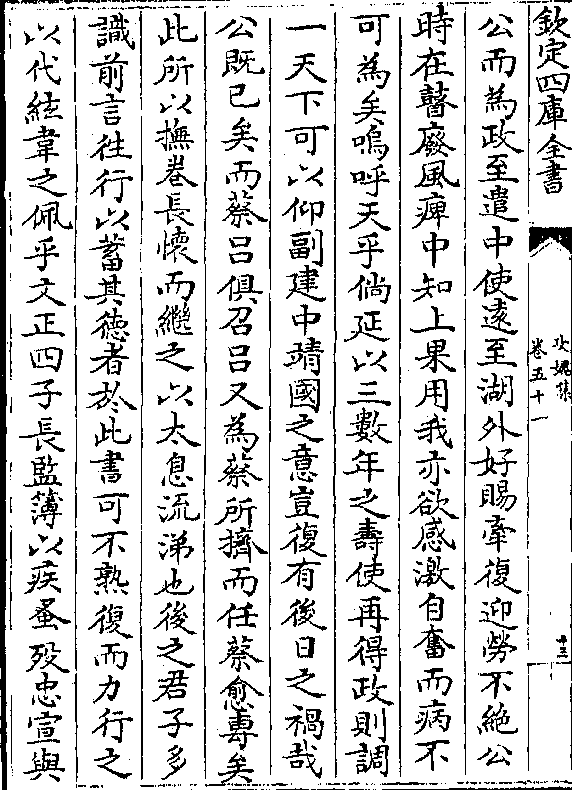 欽定四庫全書
攻媿集
卷五十一
十三
公而為政至遣中使遠至湖外好賜牽復迎勞不絶公
時在瞽廢風痺中知上果用我亦欲感激自奮而病不
可為矣嗚呼天乎倘延以三數年之壽使再得政則調
一天下可以仰副建中靖國之意豈復有後日之禍哉
公既已矣而蔡吕俱召吕又為蔡所擠而任蔡愈專矣
此所以撫卷長懷而繼之以太息流涕也後之君子多
識前言往行以蓄其德者於此書可不熟復而力行之
以代絃韋之佩乎文正四子長監簿以疾蚤殁忠宣與